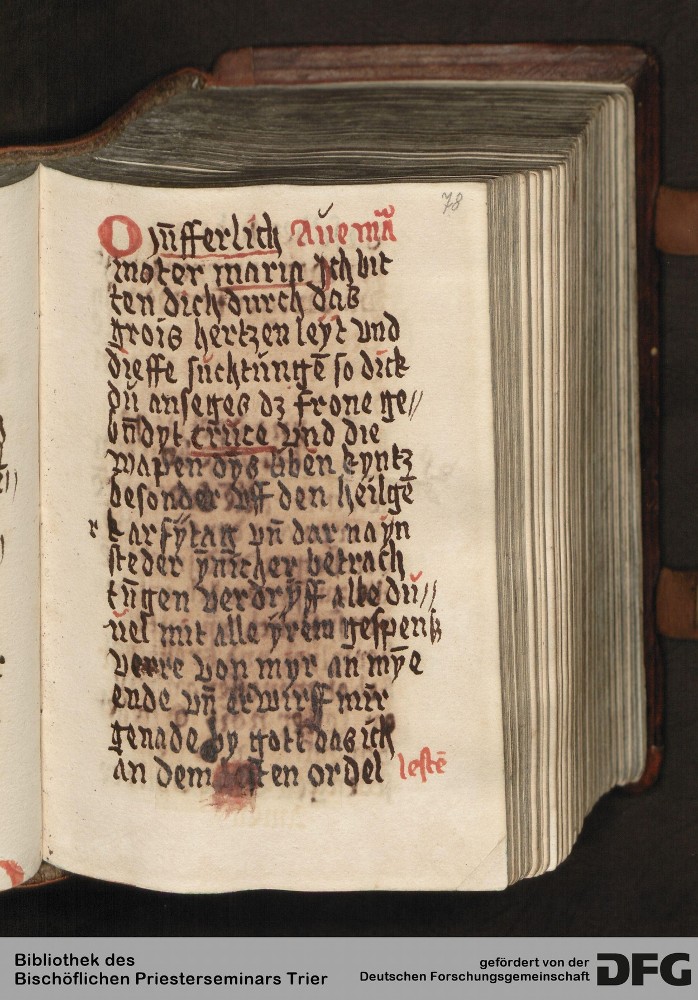 78
O Jūfferlich Aue mā
moter maria Jch bit
ten dich durch das
grois hertzen leyt vnd
dieffe suchtungē so dick
du anseges dz frone ge//
bn̄dyt cruce vnd die
wapen dys liben kyntz
besonder vff den heilgē
karfrytag vn̄ dar nayn
steder ynicher betrach
tūgen verdryff alle du//
uel mit alle yrem gespenß
verre von myr an mye
ende vn̄ erwirff mir
genade by gott das ich
an dem lesten ordel lestē
Bibliothek des
Bischöflichen Priesterseminars Trier
gefördert von der
Deutschen Forschungsgemeinschaft DFG